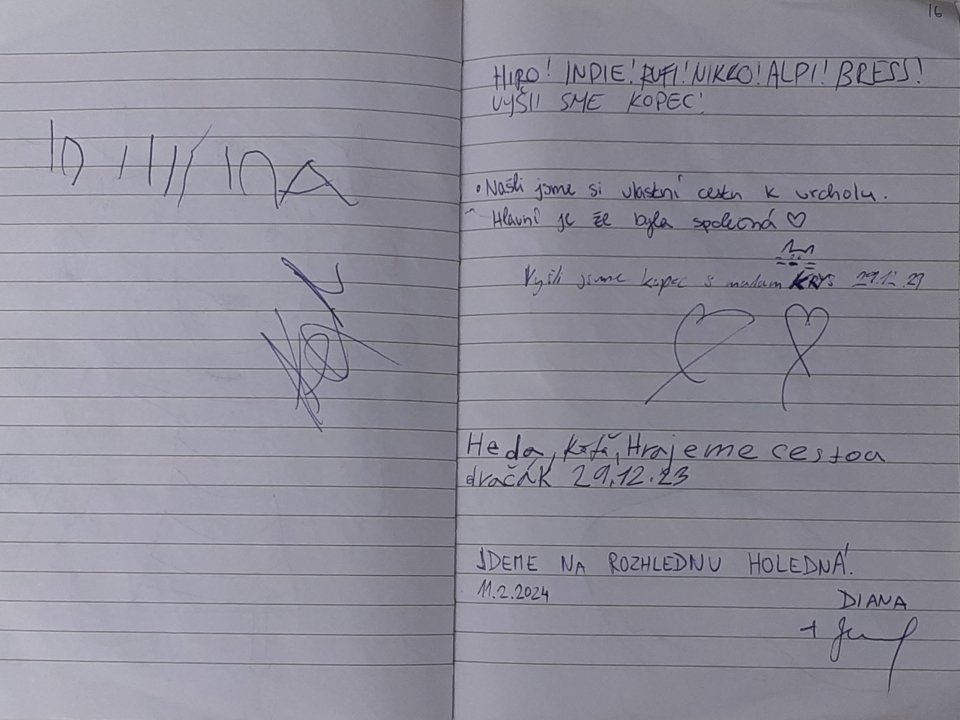 16
HIRO! INDIE! RUFI! NIKKO! ALPI! BRESS!
VYŠLI SME KOPEC!
• Našli jsme si vlastní cestu k vrcholu.
Hlavní je že byla společná ♡
Vyšli jsme kopec s madam KRYS 29.12.23
Heda, Hrajeme cestou
dračák 29.12.23
JDEME NA ROZHLEDNU HOLEDNÁ!
11.2.2024
DIANA
+